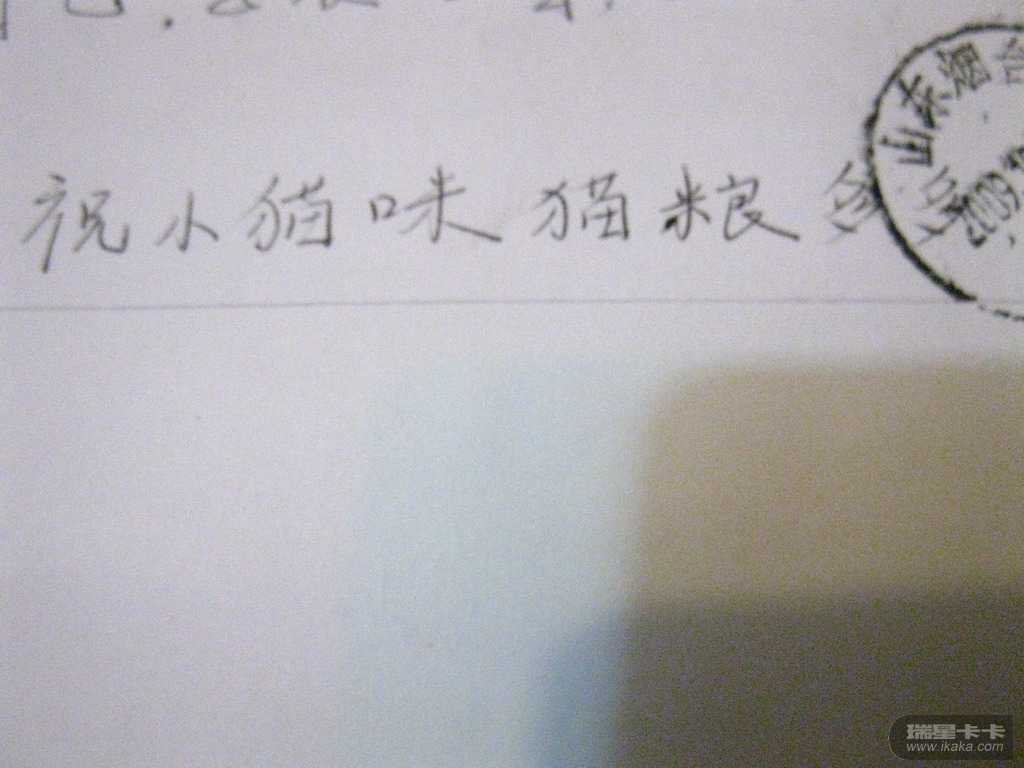 祝小猫咪猫粮多多
山东烟台
瑞星卡卡
www.ikaka.com